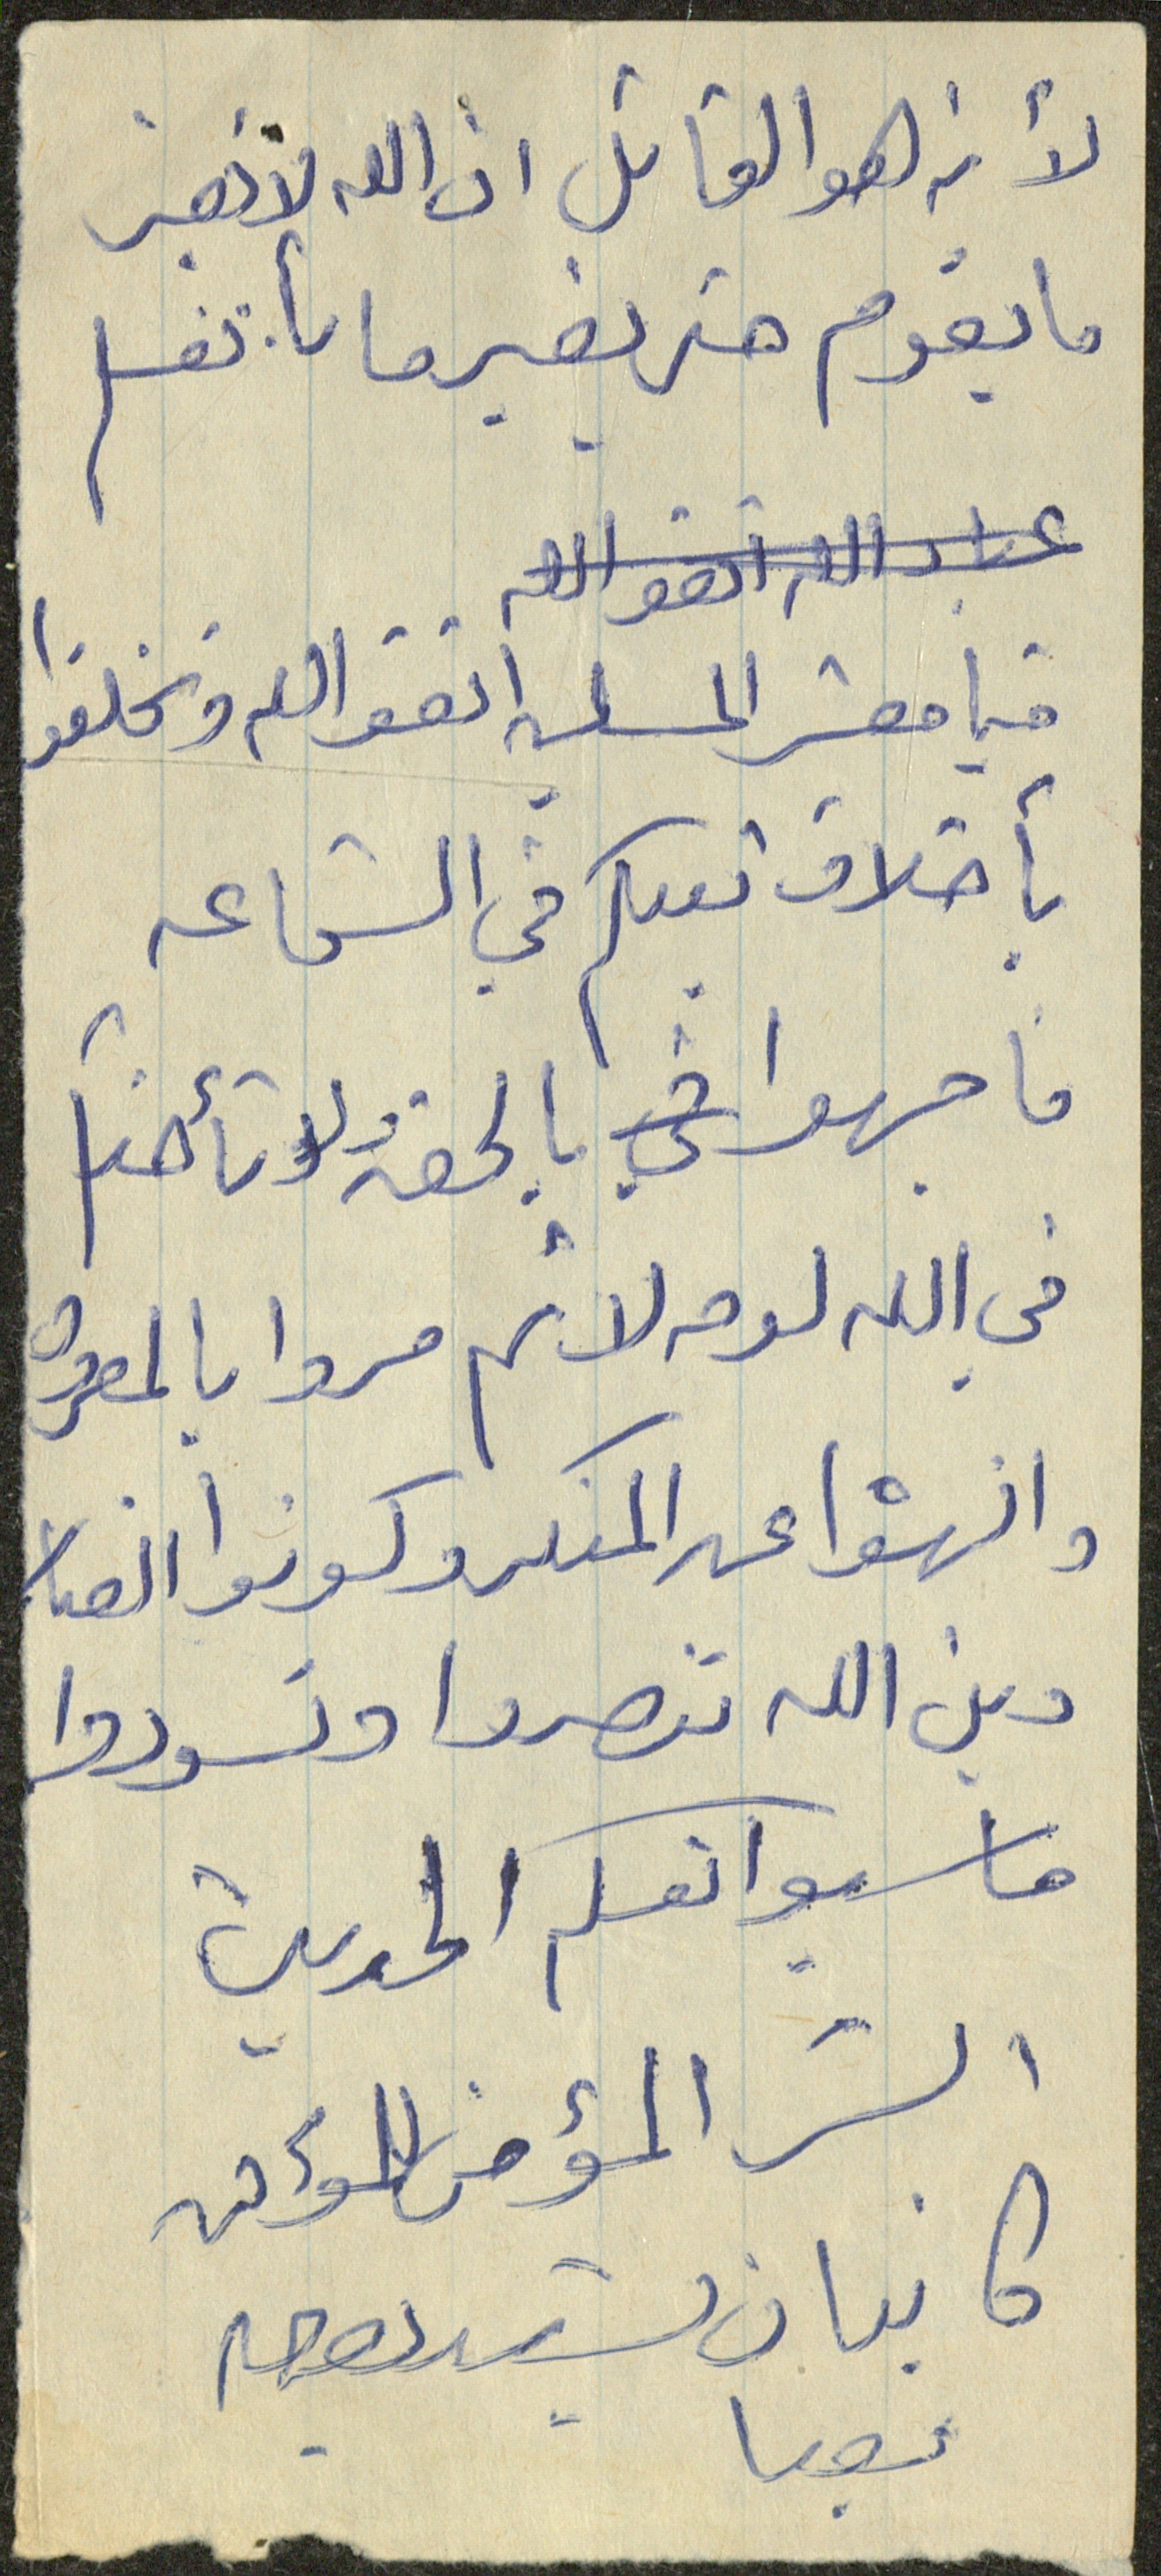 لأنه هو القائل ان الله لا يغير
ما بقوم حتى يغير ما بأنفسهم
عباد الله اتقو الله
فيا معشر المسلمين اتقو الله وتخلقوا
بأخلاق نبيكم في الشجاعه
فاجهروا في بالحق ولا تأخذكم
في الله لومه لائم مروا بالمعروف
وانهوا عن المنكر وكونوا انصار
دين الله تنصروا وتسودوا
حاسبوا انفسكم الحديث
البشر المؤمن للمؤمن
كا لبنيان يشد بعضه
بعضا